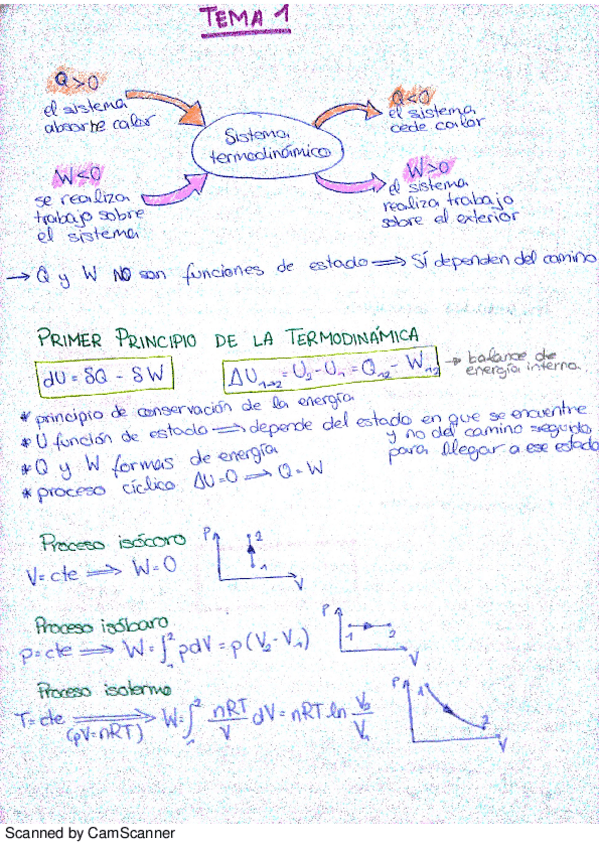 TEMA 1
Q>0
el sistema
absorbe calor
W<0
se realiza
trabajo sobre
el sistema
Sistema
termodinámico
Q<0
el sistema
cede calor
W>0
el sistema
realiza trabajo
sobre el exterior
→ Q y W NO son funciones de estado ⟹ Sí dependen del camino
PRIMER PRINCIPIO DE LA TERMODINÁMICA
dU = δQ - δW
ΔU₁→₂ = U₂ - U₁ = Q₁₂ - W₁₂ → balance de
energía interna.
* principio de conservación de la energía
* U función de estado ⟹ depende del estado en que se encuentre
y no del camino seguido
para llegar a ese estado
* Q y W formas de energía
* proceso cíclico ΔU=0 ⟹ Q=W
Proceso isócoro
P
2
1
V
V=cte ⟹ W=0
Proceso isóbaro
P
1
2
V
p=cte ⟹ W=∫₁² pdV = p(V₂-V₁)
Proceso isotermo
P
1
2
V
T=cte ⟹ W=∫₁² nRT/V dV = nRT ln V₂/V₁
(pV=nRT)
Scanned by CamScanner